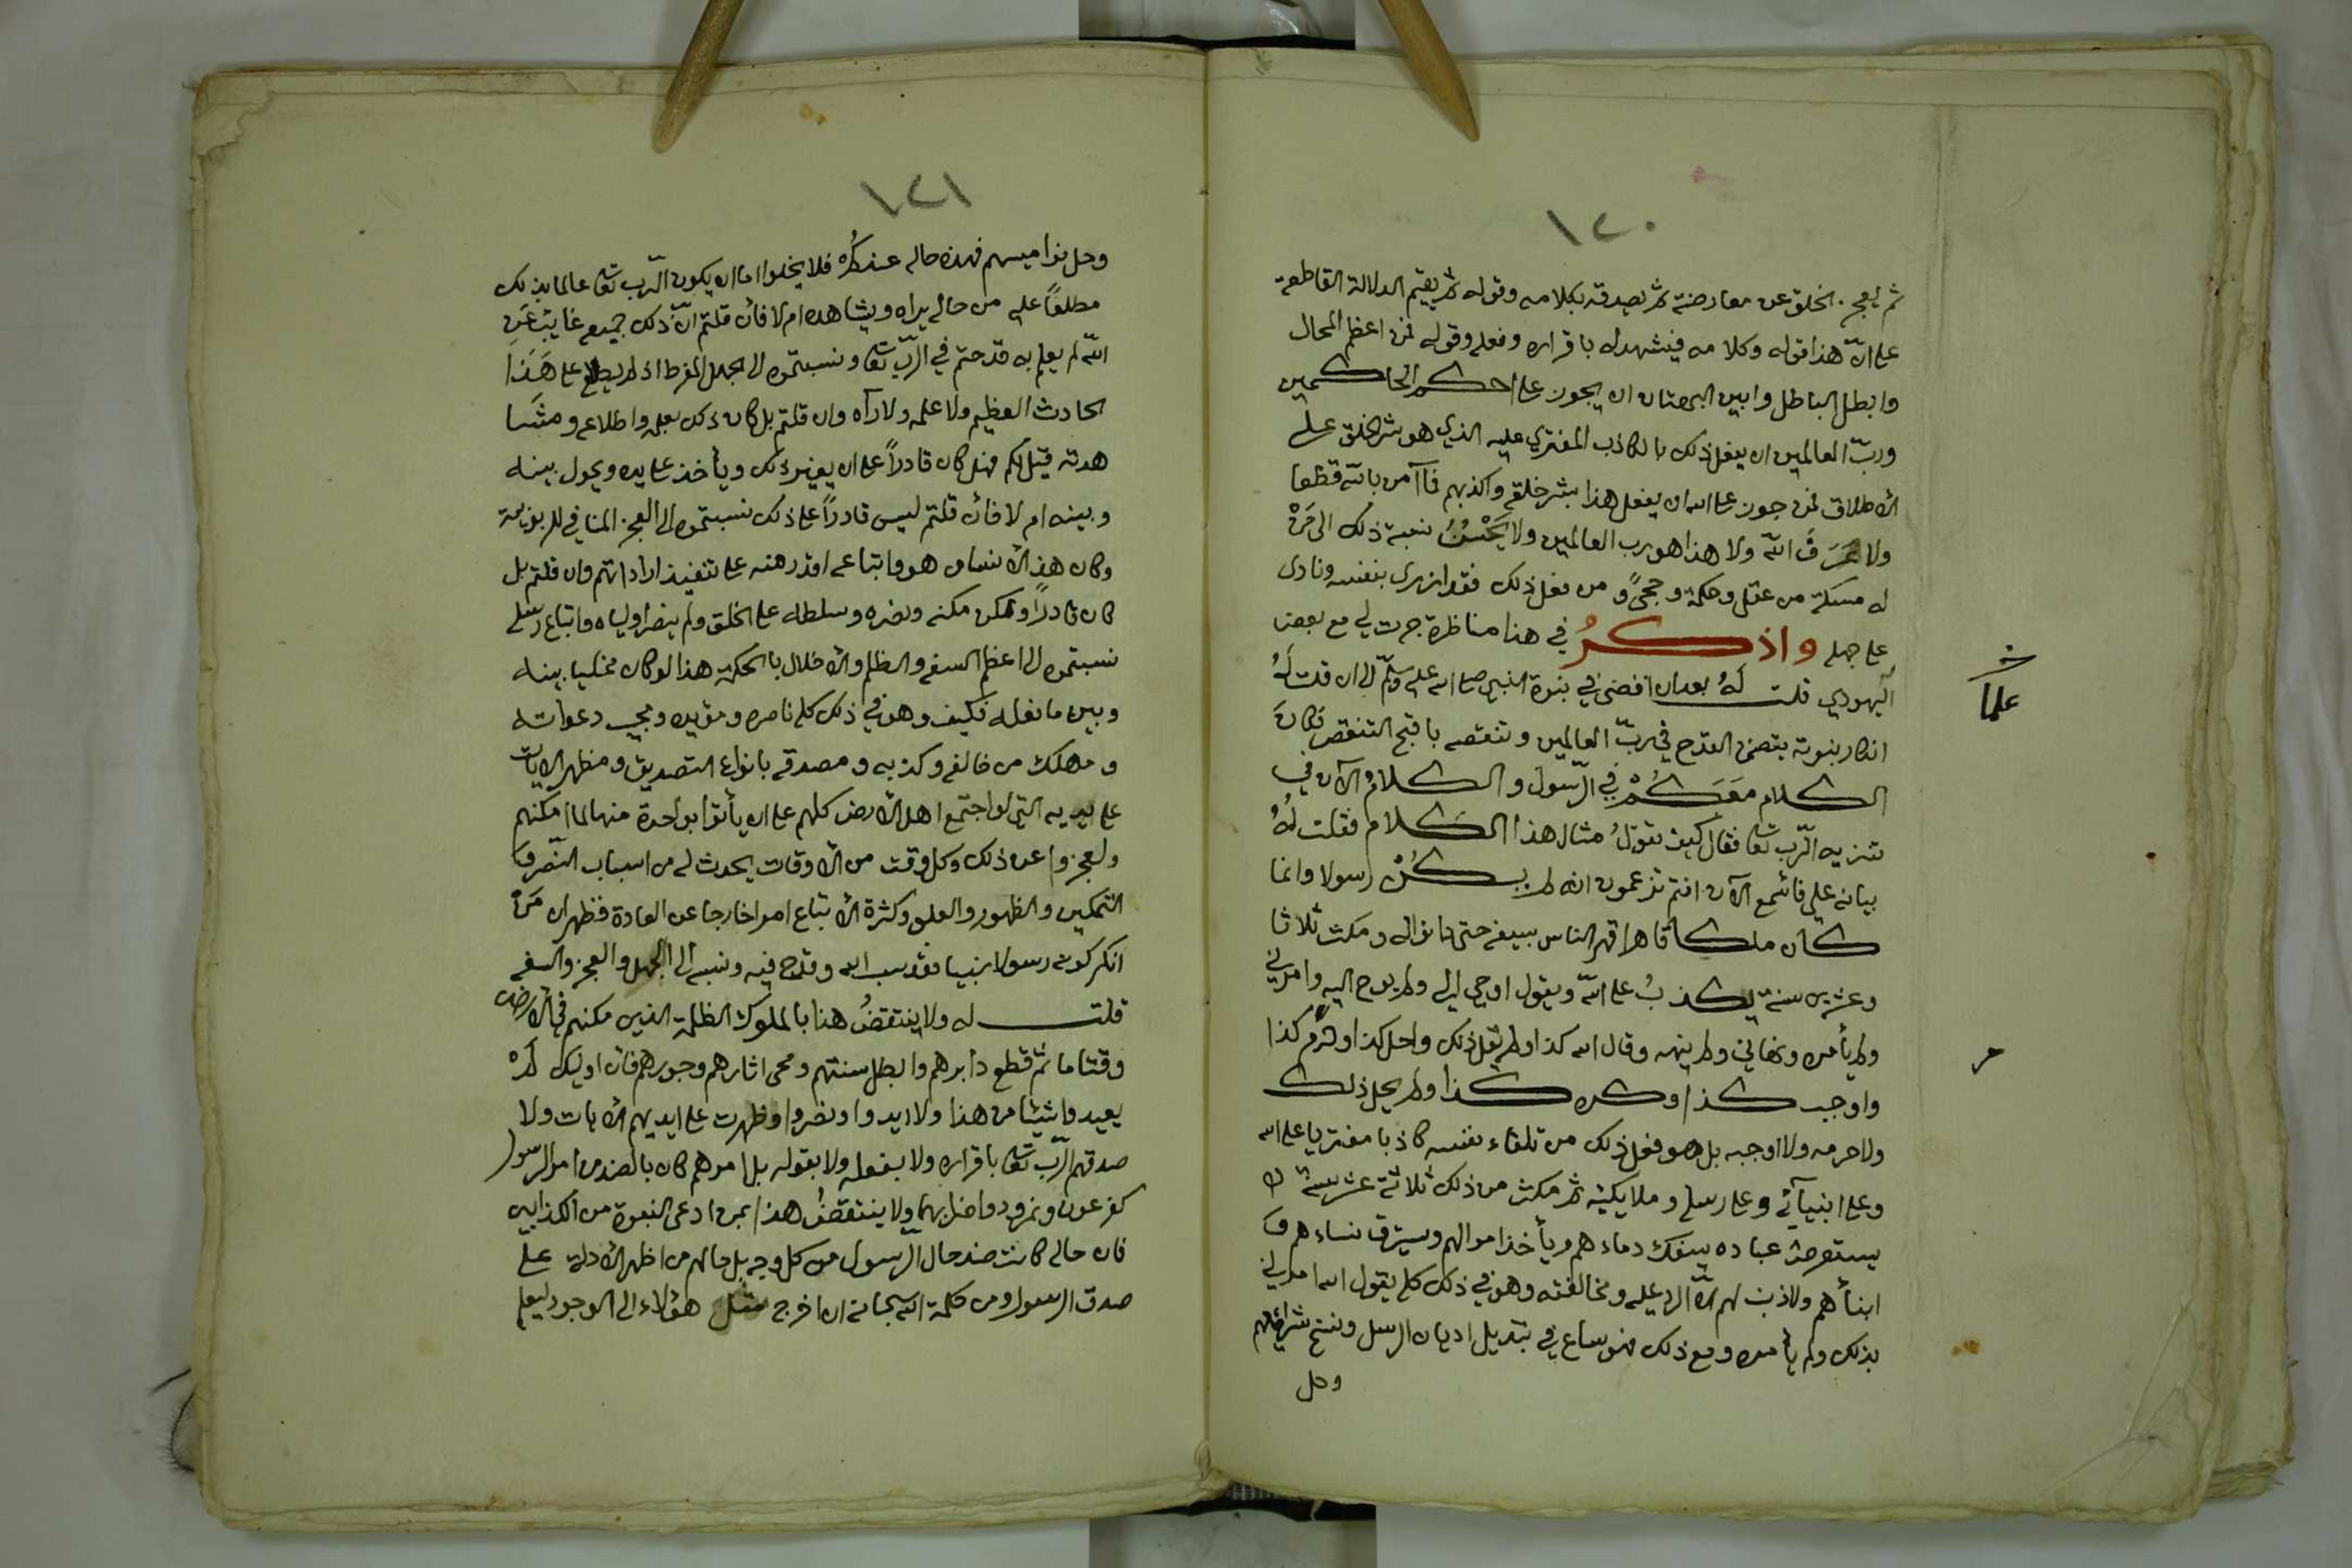 ١٢٠
ثم يعجز الخلق عن معارضته ثم يصدقه بكلامه وقوله ثم يقيم الدلالة القاطعة
على انّ هذا قوله وكلامه فيشهد له باقراره وفعله وقوله فمن اعظم المحال
وابطل الباطل وابين البهتان ان يجوز على احكم الحاكمين
وربّ العالمين ان يفعل ذلك بالكاذب المفتري عليه الذي هو شر الخلق على
الاطلاق فمن جوز على الله ان يفعل هذا بشر خلقه واكذبهم فما آمن بالله قطعا
ولا عَرَفَ اللّه ولا هذا هو رب العالمين ولا يَحْسُنُ نسبة ذلك الى مَنْ
له مسكة من عقل وحكمة وحجىً ومن فعل ذلك فقد ازرى بنفسه ونادى
على جهله واذكرُ في هذا مناظرة جرت لي مع بعض
علماء
اليهودي قلت لَهُ بعد ان افضى في نبوة النبي صلى الله عليه وسلّم الى ان قلت لَهُ
انكار نبوته يتضمن القدح في ربّ العالمين وتنقصه باقبح التنقص فكانَ
الكلام مَعَكُمْ في الرّسول والكلامُ الآن في
تنزيه الرّب تعالى فقال كيف تقولُ مثال هذا الكلام فقلت لَهُ
بيانه علي فاسمع الآن انتم تزعمون انه لم يكُنْ رسولا وانما
كان ملكا قاهرا قهر الناس بسيفه حتى دانوا له ومكث ثلاثا
وعشرين سنة يكذبُ على اللّه ويقول اوحي الي ولم يوح اليه وامرني
ولم يأمره ونهاني ولم ينهه وقال الله كذا ولم يقل ذلك واحل كذا وحرّم كذا
م
واوجب كذا وكره كذا ولم يحل ذلك
ولا حرمه ولا اوجبه بل هو فعل ذلك من تلقاء نفسه كاذبا مفتريا على الله
وعلى انبيآئه وعلى رسله وملايكته ثم مكث من ذلك ثلاثة عشر سنة
يستعرض عباده يسفك دماءهم ويأخذ اموالهم ويسترق نساءهم و
ابنأهم ولا ذنب لهم الاّ الرد عليه ومخالفته وهو في ذلك كله يقول الله امرني
بذلك ولم يأمره ومع ذلك فهو ساع في تبديل اديان الرسل ونسخ شرائعهم
وحل
١٢١
وحل نواميسهم فهذه حاله عندكُمْ فلا يخلوا اما ان يكون الرّب تعالى عالما بذلك
مطلعاً عليه من حاله يراه ويشاهده ام لا فأن قلتم انّ ذلك جميعه غايب عَنِ
اللّه لم يعلم به قدحتم في الرّب تعالى ونسبتموه الى الجهل المفرط اذ لم يطلع على هَذَا
الحادث العظيم ولا علمه ولا رآه وان قلتم بل كان ذلك بعلمه واطلاعه ومشا
هدته قيل لكم فهل كان قادراً على ان يغير ذلك ويأخذ على يده ويحول بينه
وبينه ام لا فأن قلتم ليس قادراً على ذلك نسبتموه الى العجز المنافي للربوبية
وكان هذا الانسان هو واتباعه اقدر منه على تنفيذ اراداتهم وان قلتم بل
كان قادراً ولكن مكنه ونصره وسلطه على الخلق ولم ينصر اولياه واتباع رسله
نسبتموه الى اعظم السفه والظلم والاخلال بالحكمة هذا لو كان مخليا بينه
وبين ما فعله فكيف وهو في ذلك كله ناصره ومؤيده ومجيب دعواته
ومهلك من خالفه وكذبه ومصدقه بانواع التصديق ومظهر الايات
على يديه التي لو اجتمع اهل الارض كلهم على ان يأتوا بواحدة منها لما امكنهم
ولعجزوا عن ذلك وكل وقت من الاوقات يحدث له من اسباب النّصر و
التمكين والظهور والعلو وكثرة الاتباع امرا خارجا عن العادة فظهر ان مَنْ
انكر كونه رسولا نبيا فقد سب الله وقدح فيه ونسبه الى الجهل والعجز والسفه
قلت له ولا ينتقضُ هذا بالملوك الظلمة الذين مكنهم في الارض
وقتا ما ثم قطع دابرهم وابطل سنتهم ومحى اثارهم وجورهم فان اوليك لَمْ
يعيدوا شيئا من هذا ولا ايدوا ونصروا وظهرت على ايديهم الايات ولا
صدقهم الرّب تعالى باقراره ولا بفعله ولا بقوله بل امرهم كان بالضد من امر الرسول
كفرعون ونمرود واضرابهما ولا ينتقضُ هذا بمن ادعى النبوة من الكذابين
فان حاله كانت ضد حال الرسول من كل وجه بل حالهم من اظهر الادلة على
صدق الرسول ومن حكمة الله سبحانه ان اخرج مثل هؤلاء الى الوجود ليعلم